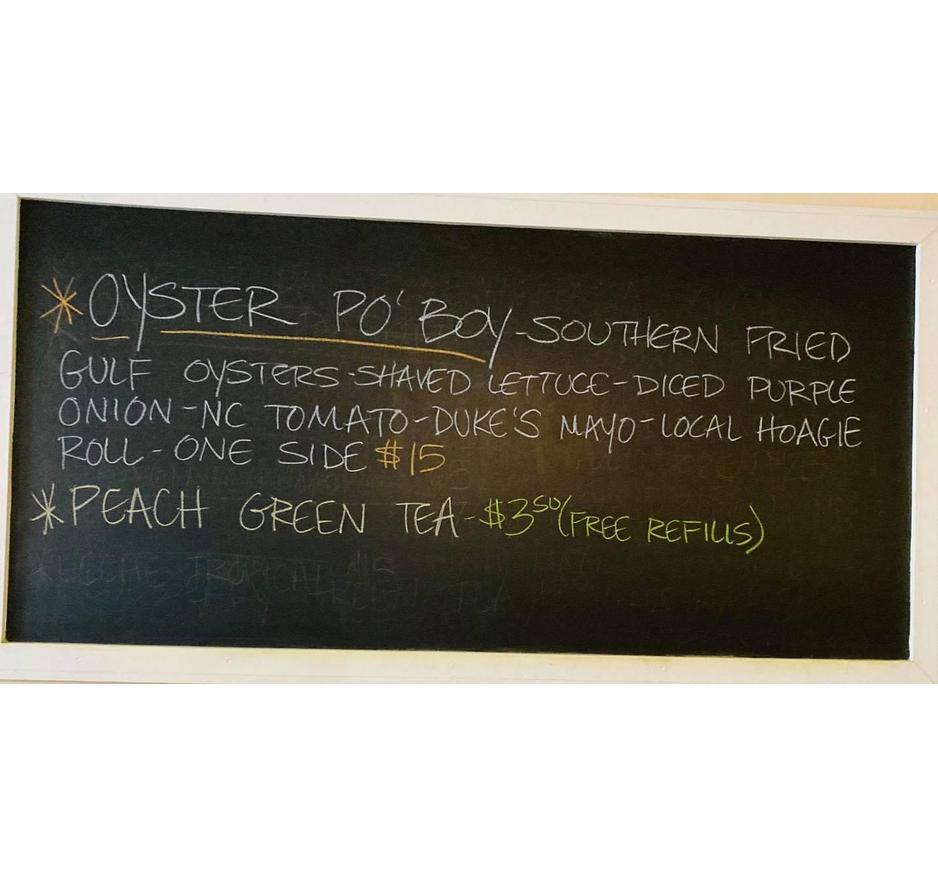 * OYSTER PO' BOY - SOUTHERN FRIED
GULF OYSTERS - SHAVED LETTUCE - DICED PURPLE
ONION - NC TOMATO - DUKE'S MAYO - LOCAL HOAGIE
ROLL - ONE SIDE $15
* PEACH GREEN TEA - $3.50 (FREE REFILLS)